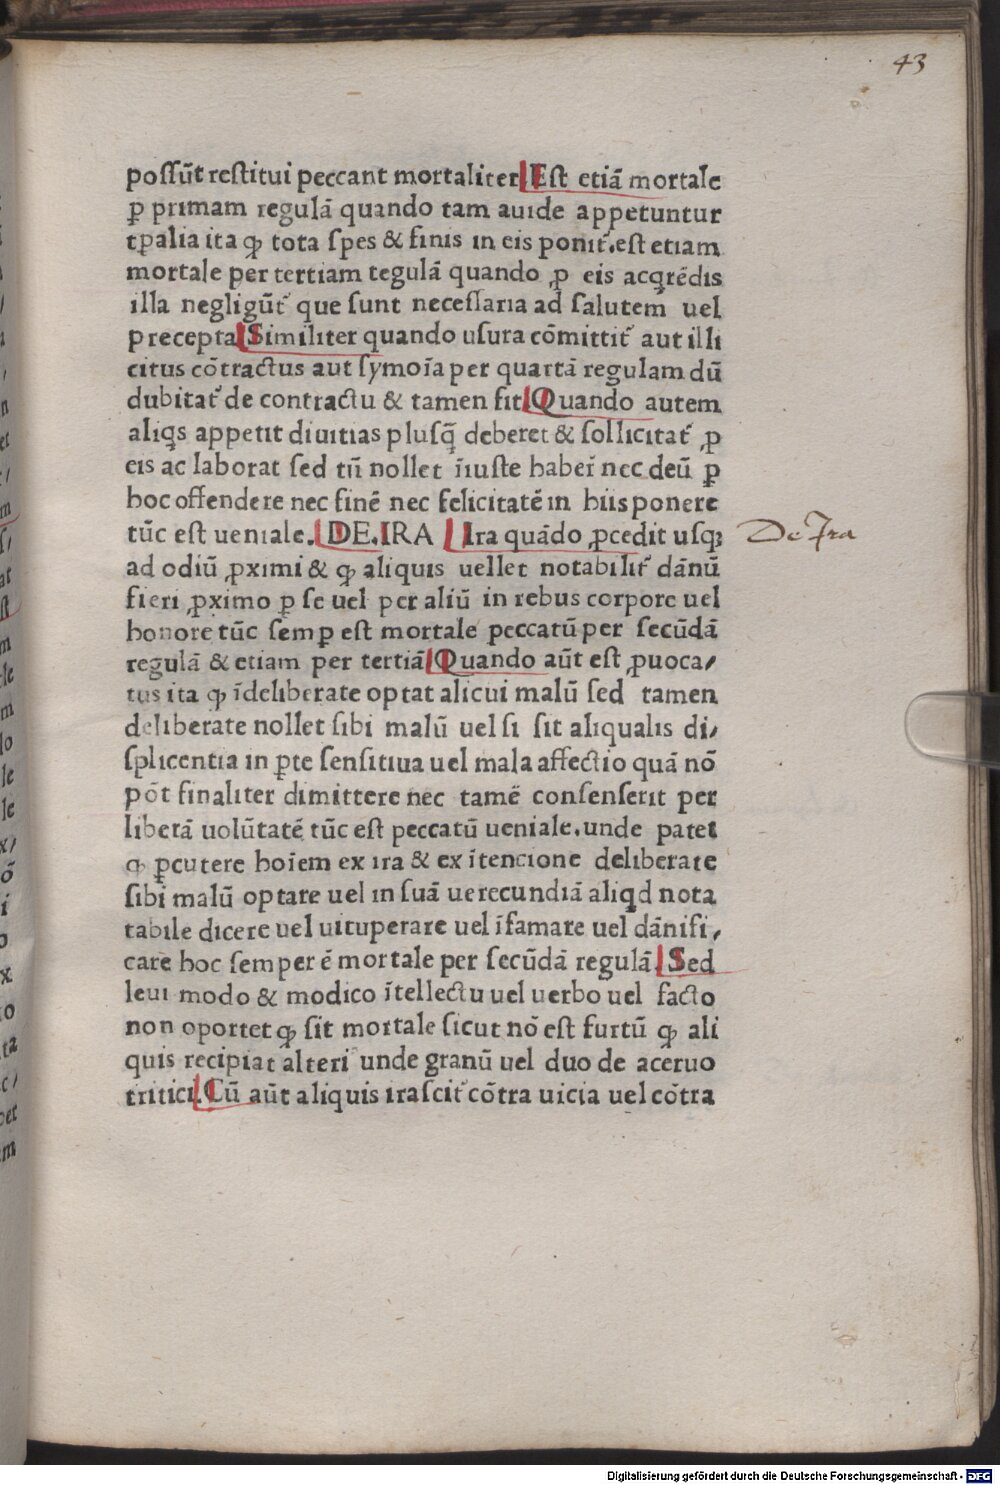 43
possūt restitui peccant mortaliter. Est etiā mortale
ꝑ primam regulā quando tam auide appetuntur
tꝑalia ita ꝙ tota spes & finis in eis ponit᷑.est etiam
mortale per tertiam tegulā quando ꝓ eis acq̄rēdis
illa negligūt᷑ que sunt necessaria ad salutem uel
precepta. Similiter quando usura cōmittit᷑ aut illi
citus cōtractus aut symoīa per quartā regulam dū
dubitat᷑ de contractu & tamen fit. Quando autem
aliqs appetit diuitias plusq̄ deberet & sollicitat᷑ ꝓ
eis ac laborat sed tn̄ nollet īiuste haber᷑ nec deū ꝑ
hoc offendere nec finē nec felicitatē in hiis ponere
tūc est ueniale. DE.IRA Ira quādo ꝓcedit usqꝫ
De Ira
ad odiū ꝓximi & ꝙ aliquis uellet notabilit᷑ dānū
fieri ꝓximo ꝑ se uel per aliū in rebus corpore uel
honore tūc semꝑ est mortale peccatū per secūdā
regulā & etiam per tertiā. Quando aūt est ꝓuoca/
tus ita ꝙ īdeliberate optat alicui malū sed tamen
deliberate nollet sibi malū uel si sit aliqualis di/
splicentia in ꝑte sensitiua uel mala affectio quā nō
pōt finaliter dimittere nec tamē consenserit per
liberā uolūtatē tūc est peccatū ueniale.unde patet
ꝙ ꝑcutere hoīem ex ira & ex ītencione deliberate
sibi malū optare uel in suā uerecundiā aliqd nota
tabile dicere uel uituperare uel īfamare uel dānifi/
care hoc semper ē mortale per secūdā regulā. Sed
leui modo & modico ītellectu uel uerbo uel facto
non oportet ꝙ sit mortale sicut nō est furtū ꝙ ali
quis recipiat alteri unde granū uel duo de aceruo
tritici. Cū aūt aliquis irascit᷑ cōtra uicia uel cōtra
Digitalisierung gefördert durch die Deutsche Forschungsgemeinschaft - DFG